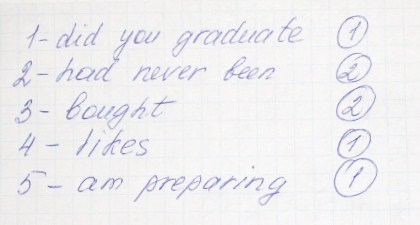 1 - did you graduate 1
2 - had never been 2
3 - bought 2
4 - likes 1
5 - am preparing 1